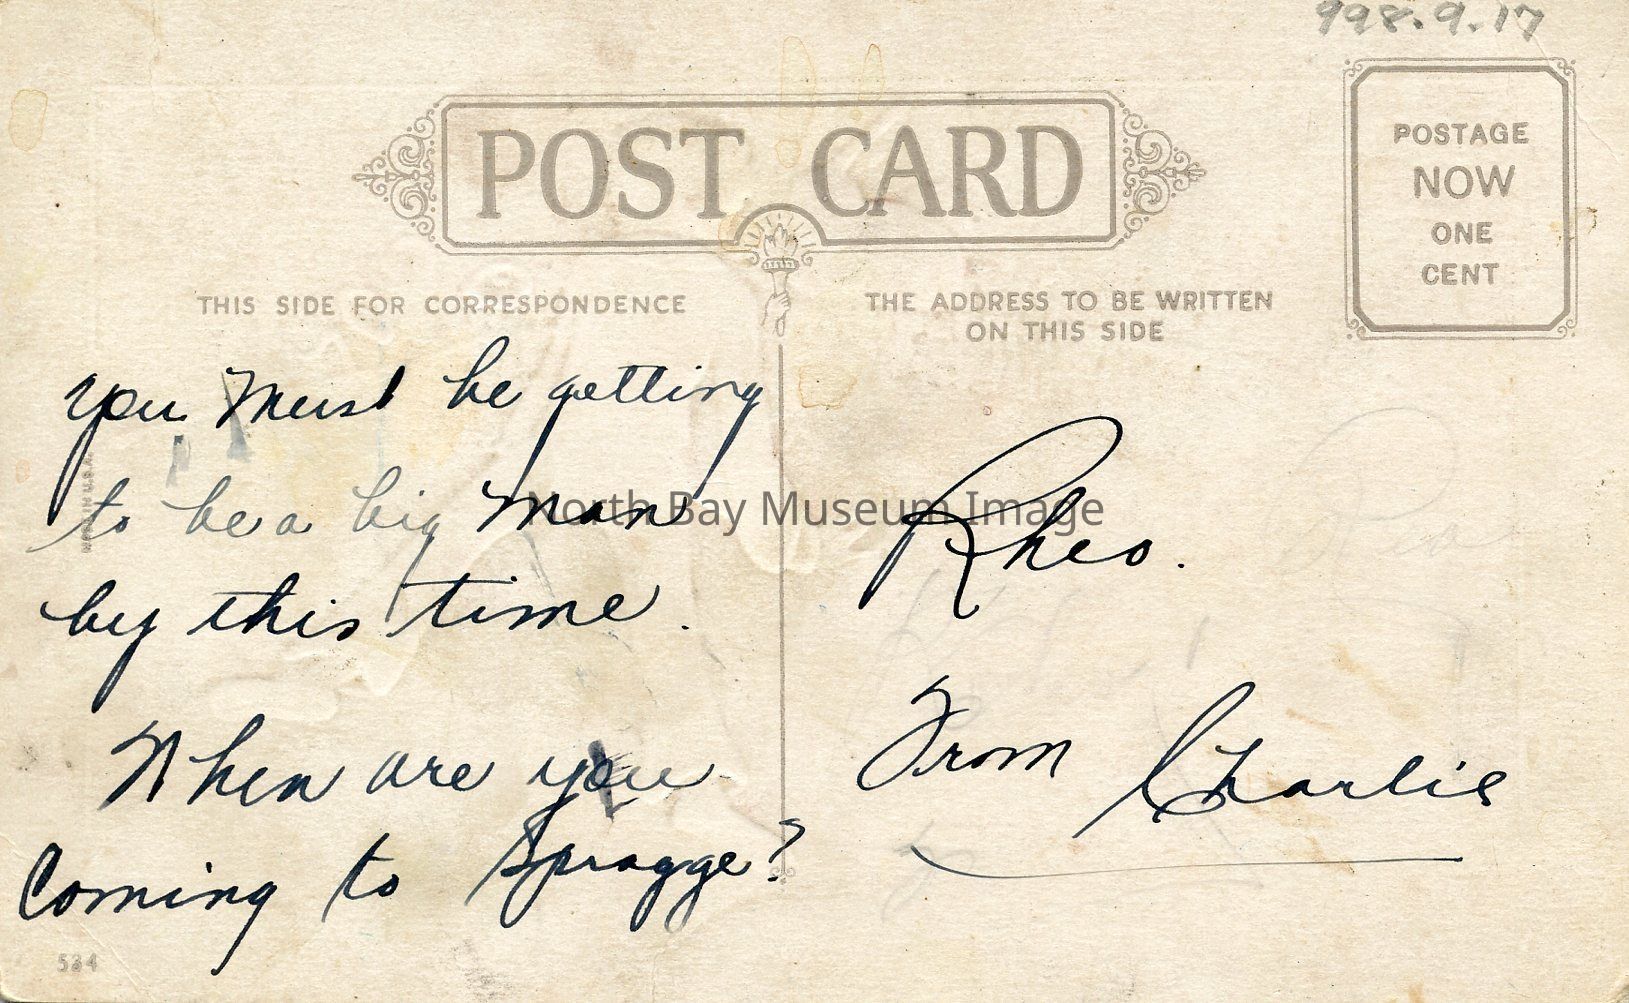 998.9.17
POST CARD
POSTAGE
NOW
ONE
CENT
THIS SIDE FOR CORRESPONDENCE
THE ADDRESS TO BE WRITTEN
ON THIS SIDE
you Must be getting
to be a big Man
by this time.
When are you
Coming to Spragge?
Rheo.
From Charlie
North Bay Museum Image
534